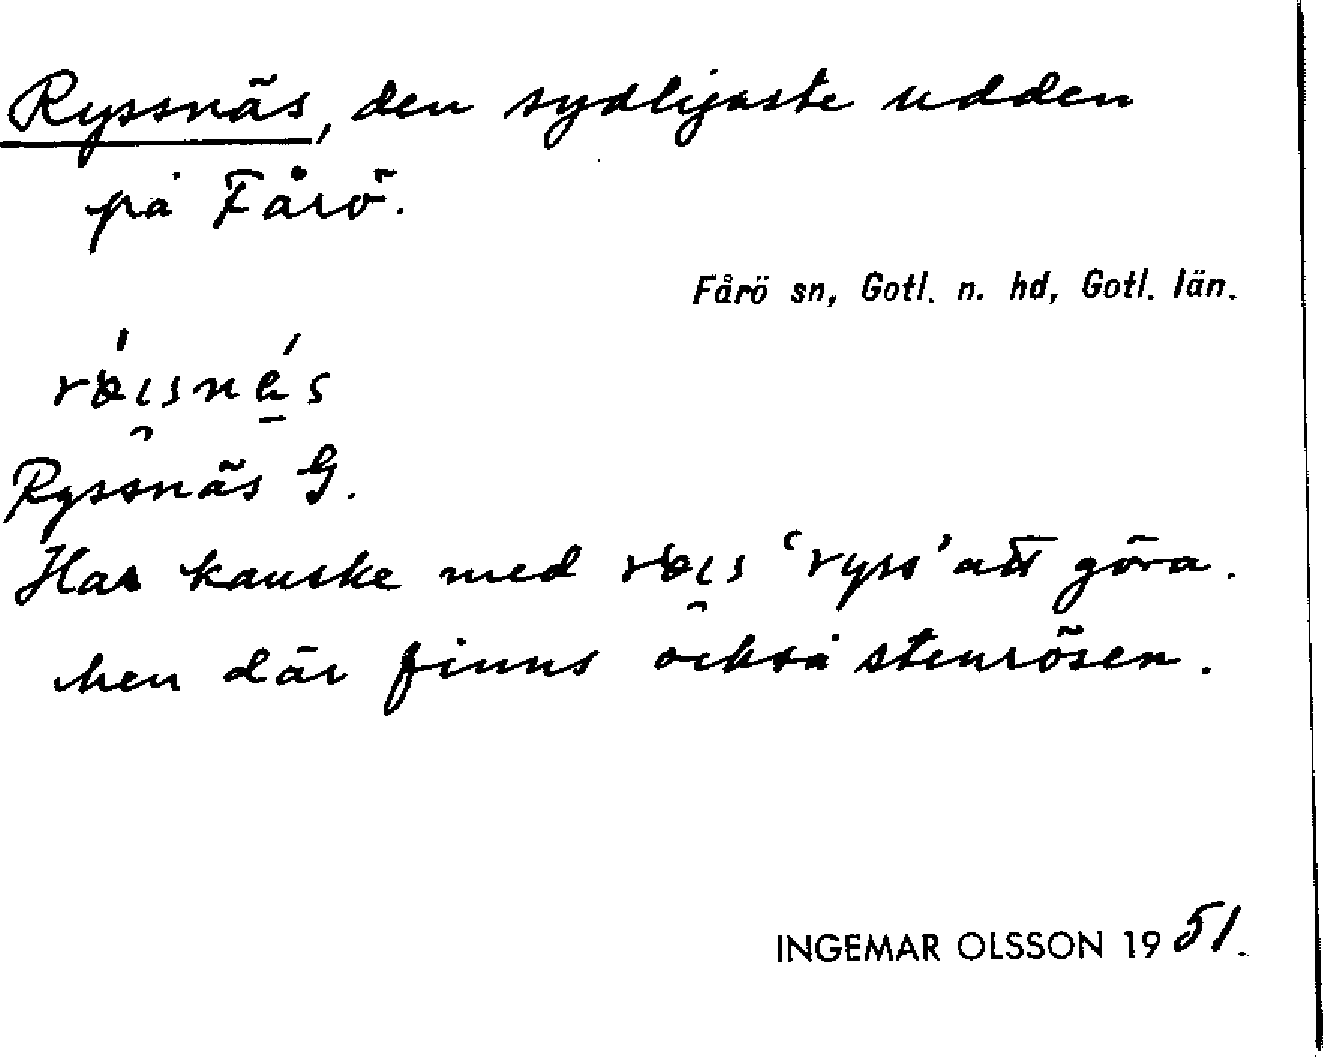 Ryssnäs, den sydligaste udden
på Fårö.
Fårö sn, Gotl. n. hd, Gotl. län.
Ryssnäs G.
Har kanske med 'ryss' att göra.
Men där finns också stenrösen.
INGEMAR OLSSON 1951.